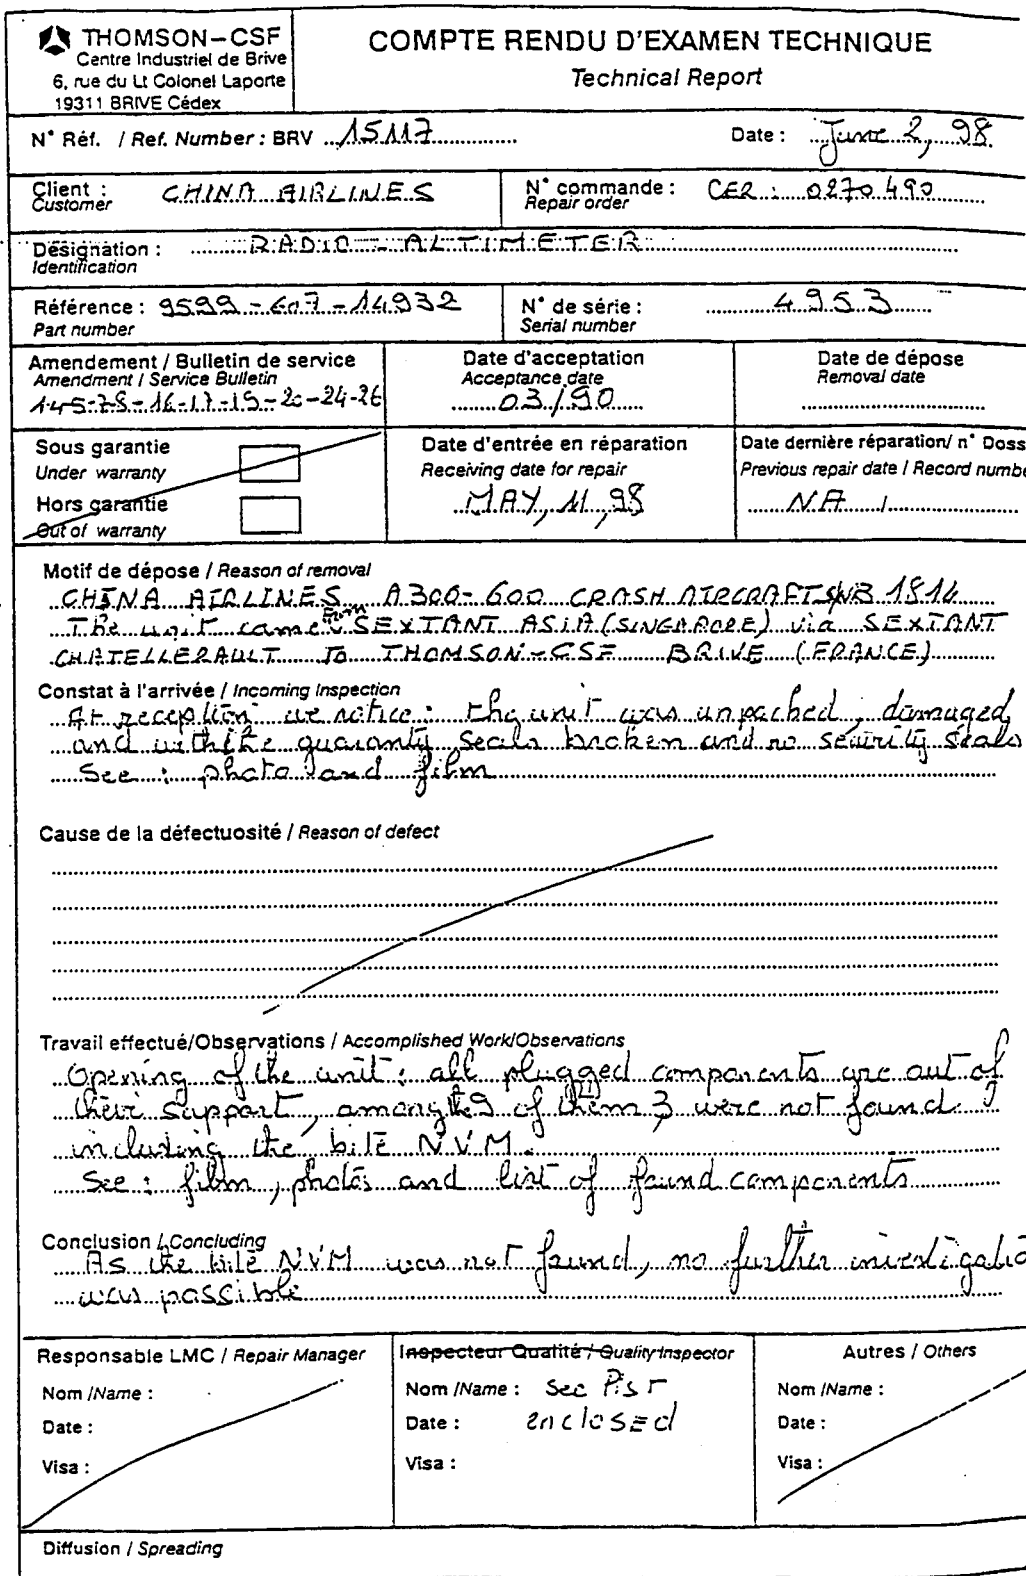 THOMSON-CSF
Centre Industriel de Brive
6, rue du Lt Colonel Laporte
19311 BRIVE Cédex
COMPTE RENDU D'EXAMEN TECHNIQUE
Technical Report
N° Réf. / Ref. Number : BRV 15117
Date : June 2, 98
Client : CHINA AIRLINES
Customer
N° commande : CER : 0270490
Repair order
Désignation : RADIO - ALTIMETER
Identification
Référence : 9599-607-14932
Part number
N° de série : 4953
Serial number
Amendement / Bulletin de service
Amendment / Service Bulletin
1-4-5-7-8-16-17-19-20-24-26
Date d'acceptation
Acceptance date
03/90
Date de dépose
Removal date
Sous garantie
Under warranty
Hors garantie
Out of warranty
Date d'entrée en réparation
Receiving date for repair
MAY, 11, 98
Date dernière réparation/ n° Doss
Previous repair date / Record numbe
NA /
Motif de dépose / Reason of removal
CHINA AIRLINES A300-600 CRASH AIRCRAFT S/NB 1814
The unit came from SEXTANT ASIA (SINGAPORE) via SEXTANT
CHATELLERAULT TO THOMSON-CSF BRIVE (FRANCE)
Constat à l'arrivée / Incoming Inspection
At reception we notice : the unit was unpacked, damaged
and with the guaranty seals broken and no security seals
See : photo and film
Cause de la défectuosité / Reason of defect
Travail effectué/Observations / Accomplished Work/Observations
Opening of the unit : all plugged components are out of
their support, among the of them 3 were not found
including the bite NVM.
See : film, photos and list of found components
Conclusion / Concluding
As the bite NVM was not found, no further investigatio
was possible
Responsable LMC / Repair Manager
Nom /Name :
Date :
Visa :
Inspecteur Qualité / Quality Inspector
Nom /Name : See
Date : enclosed
Visa :
Autres / Others
Nom /Name :
Date :
Visa :
Diffusion / Spreading